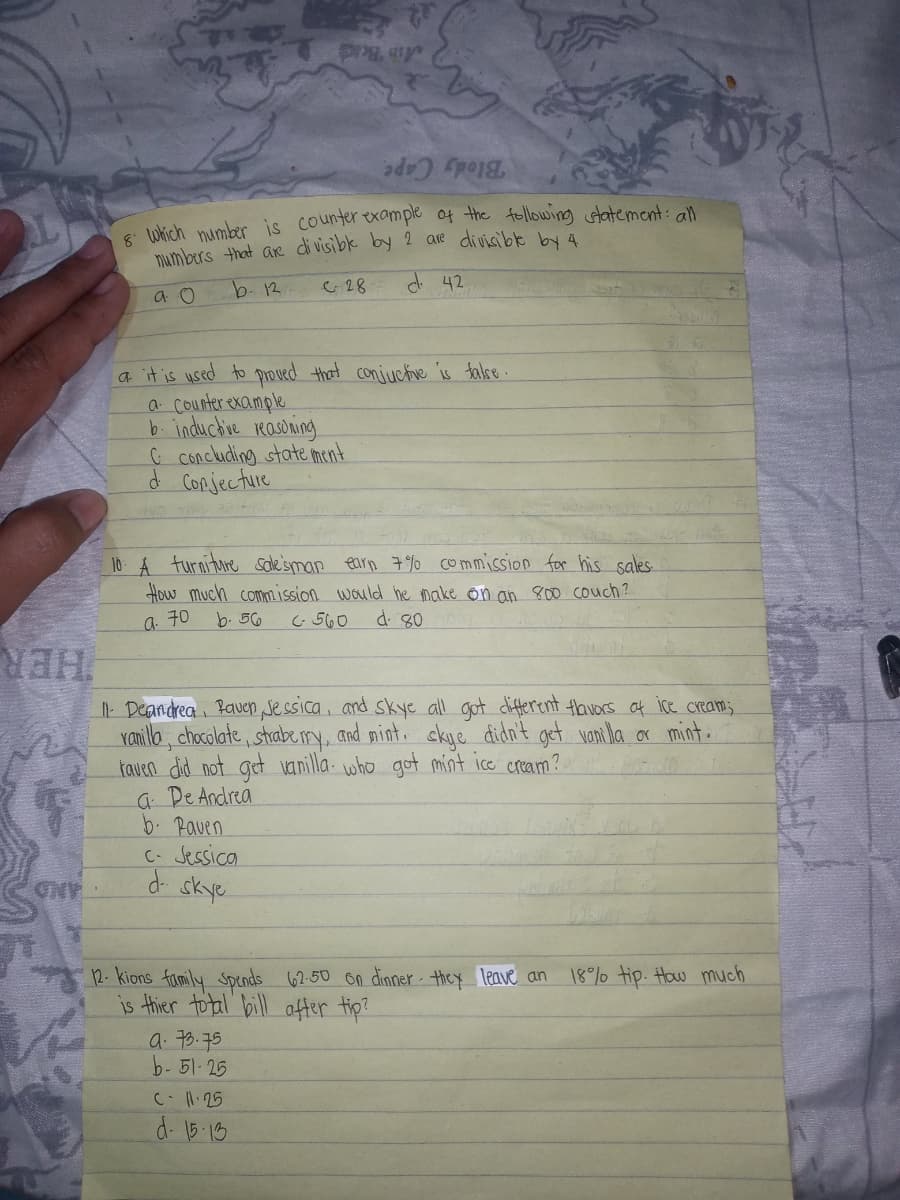 Blody Cape
8. Which number is counter example of the following statement: all
numbers that are divisible by 2 are divisible by 4
a. 0 b. 12 c. 28 d. 42
9. it is used to proved that conjuctive is false.
a. counter example
b. inductive reasoning
c. concluding statement
d. Conjecture
10. A furniture salesman earn 7% commission for his sales.
How much commission would he make on an 800 couch?
a. 70 b. 56 c. 560 d. 80
HER
11. Deandrea, Raven, Jessica, and skye all got different flavors of ice cream;
vanilla, chocolate, straberry, and mint. skye didn't get vanilla or mint.
raven did not get vanilla. who got mint ice cream?
a. De Andrea
b. Raven
c. Jessica
d. skye
AND
12. kions family spends 62.50 on dinner. they leave an 18% tip. How much
is thier total bill after tip?
a. 73.75
b. 51.25
c. 11.25
d. 15.13